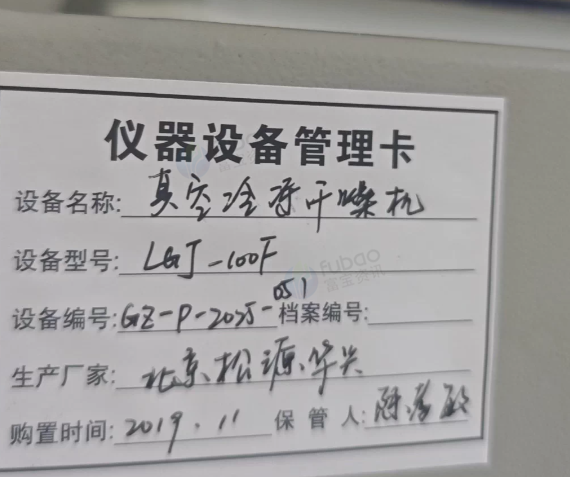 仪器设备管理卡
设备名称: 真空冷冻干燥机
设备型号: LGJ-100F
设备编号: GZ-P-2025-051 档案编号:
生产厂家: 北京松源华兴
购置时间: 2019.11 保管人:
fubao
富宝资讯